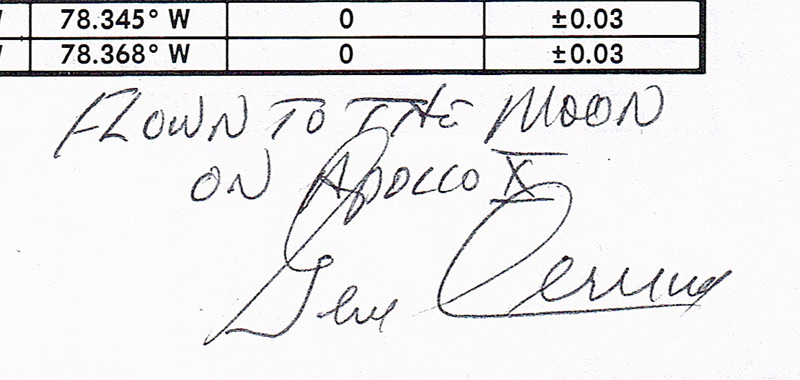 W 78.345° W 0 ±0.03
W 78.368° W 0 ±0.03
FLOWN TO THE MOON
ON APOLLO X
Gene Cernan